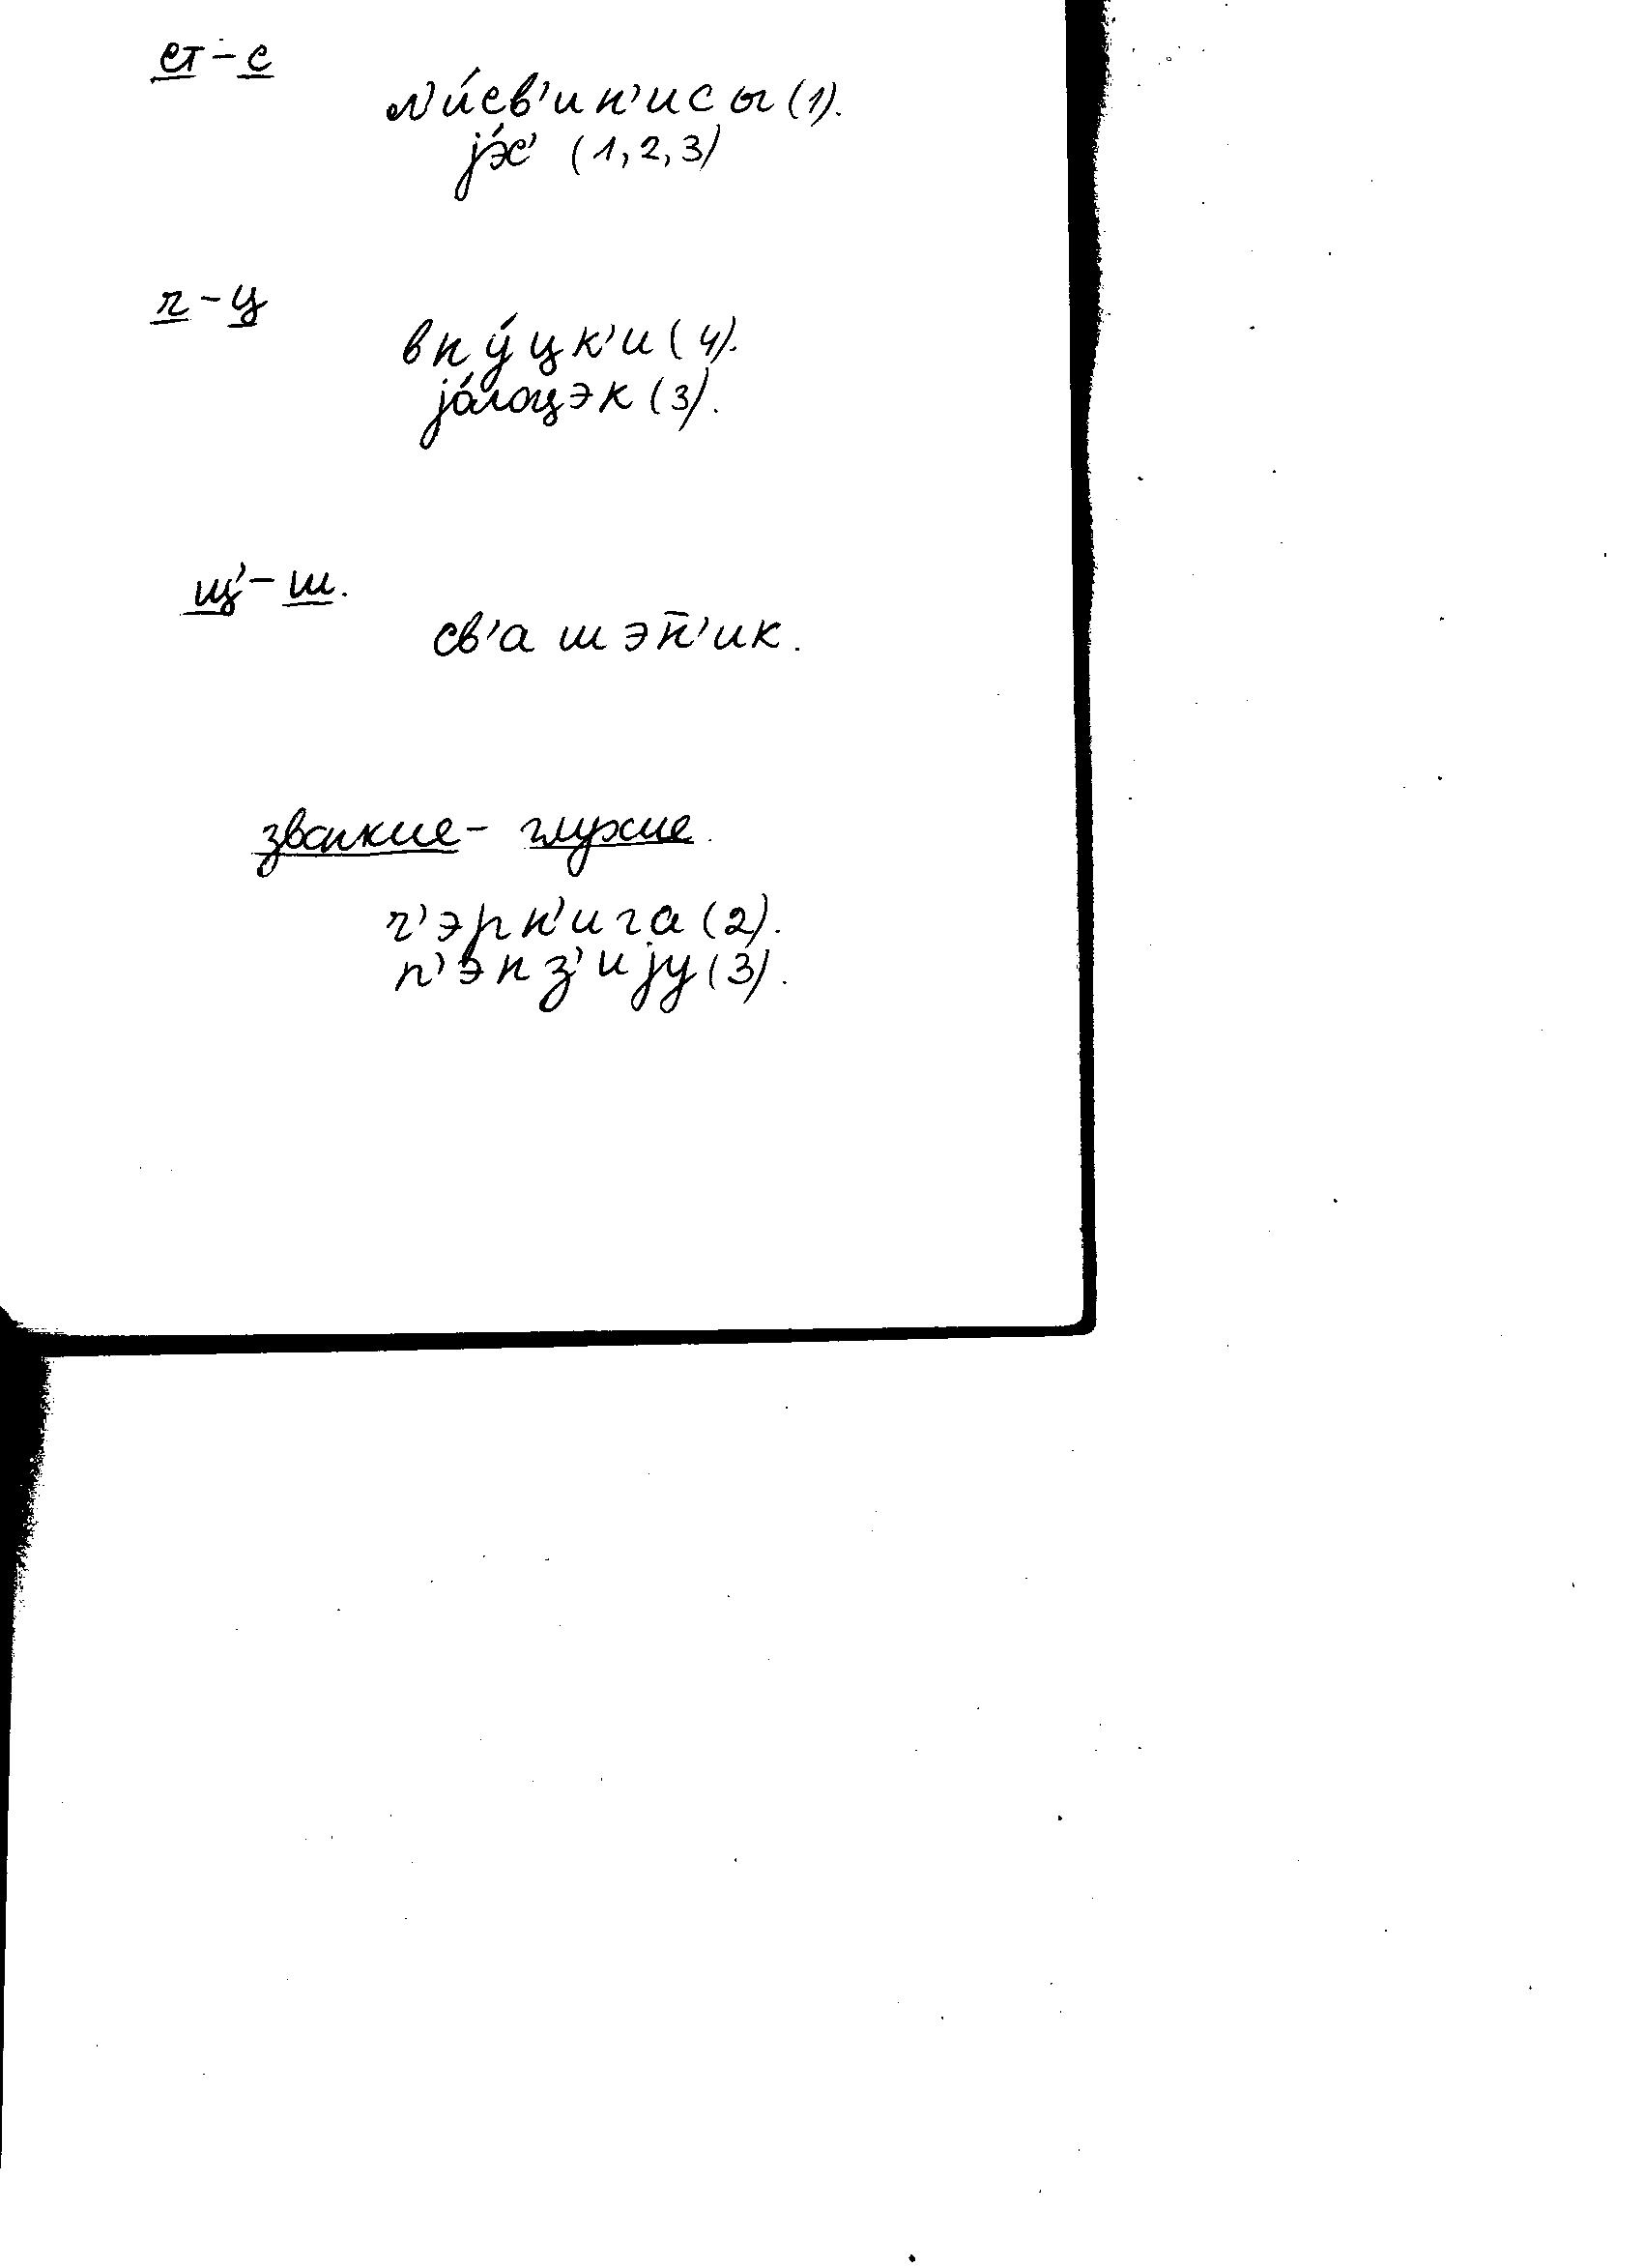 ст - с
л'и́св'ин'исы (1).
jэ́с' (1, 2, 3)
ч - ц
вну́цк'и (4).
já лоцэк (3).
щ' - ш.
св'ашэн̄'ик.
звонкие - глухие.
ч'эрн'ига (2).
п'энз'ијy (3).